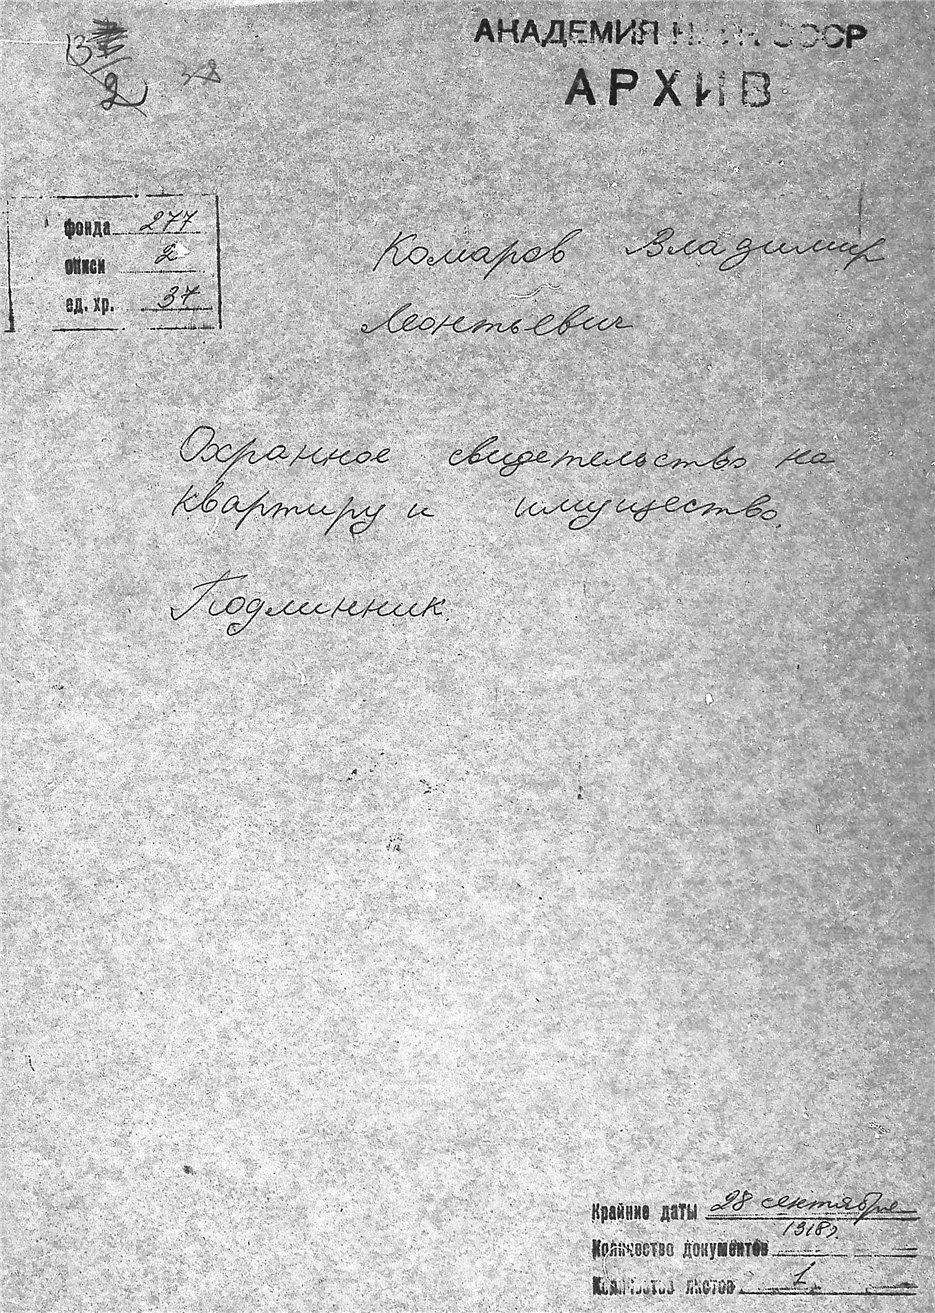 АКАДЕМИЯ НАУК СССР
АРХИВ
2
фонда 277
описи 2
ед. хр. 37
Комаров Владимир
Леонтьевич
Охранное свидетельство на
квартиру и имущество.
Подлинник.
Крайние даты 28 сентября
1918г.
Количество документов
Количество листов 1